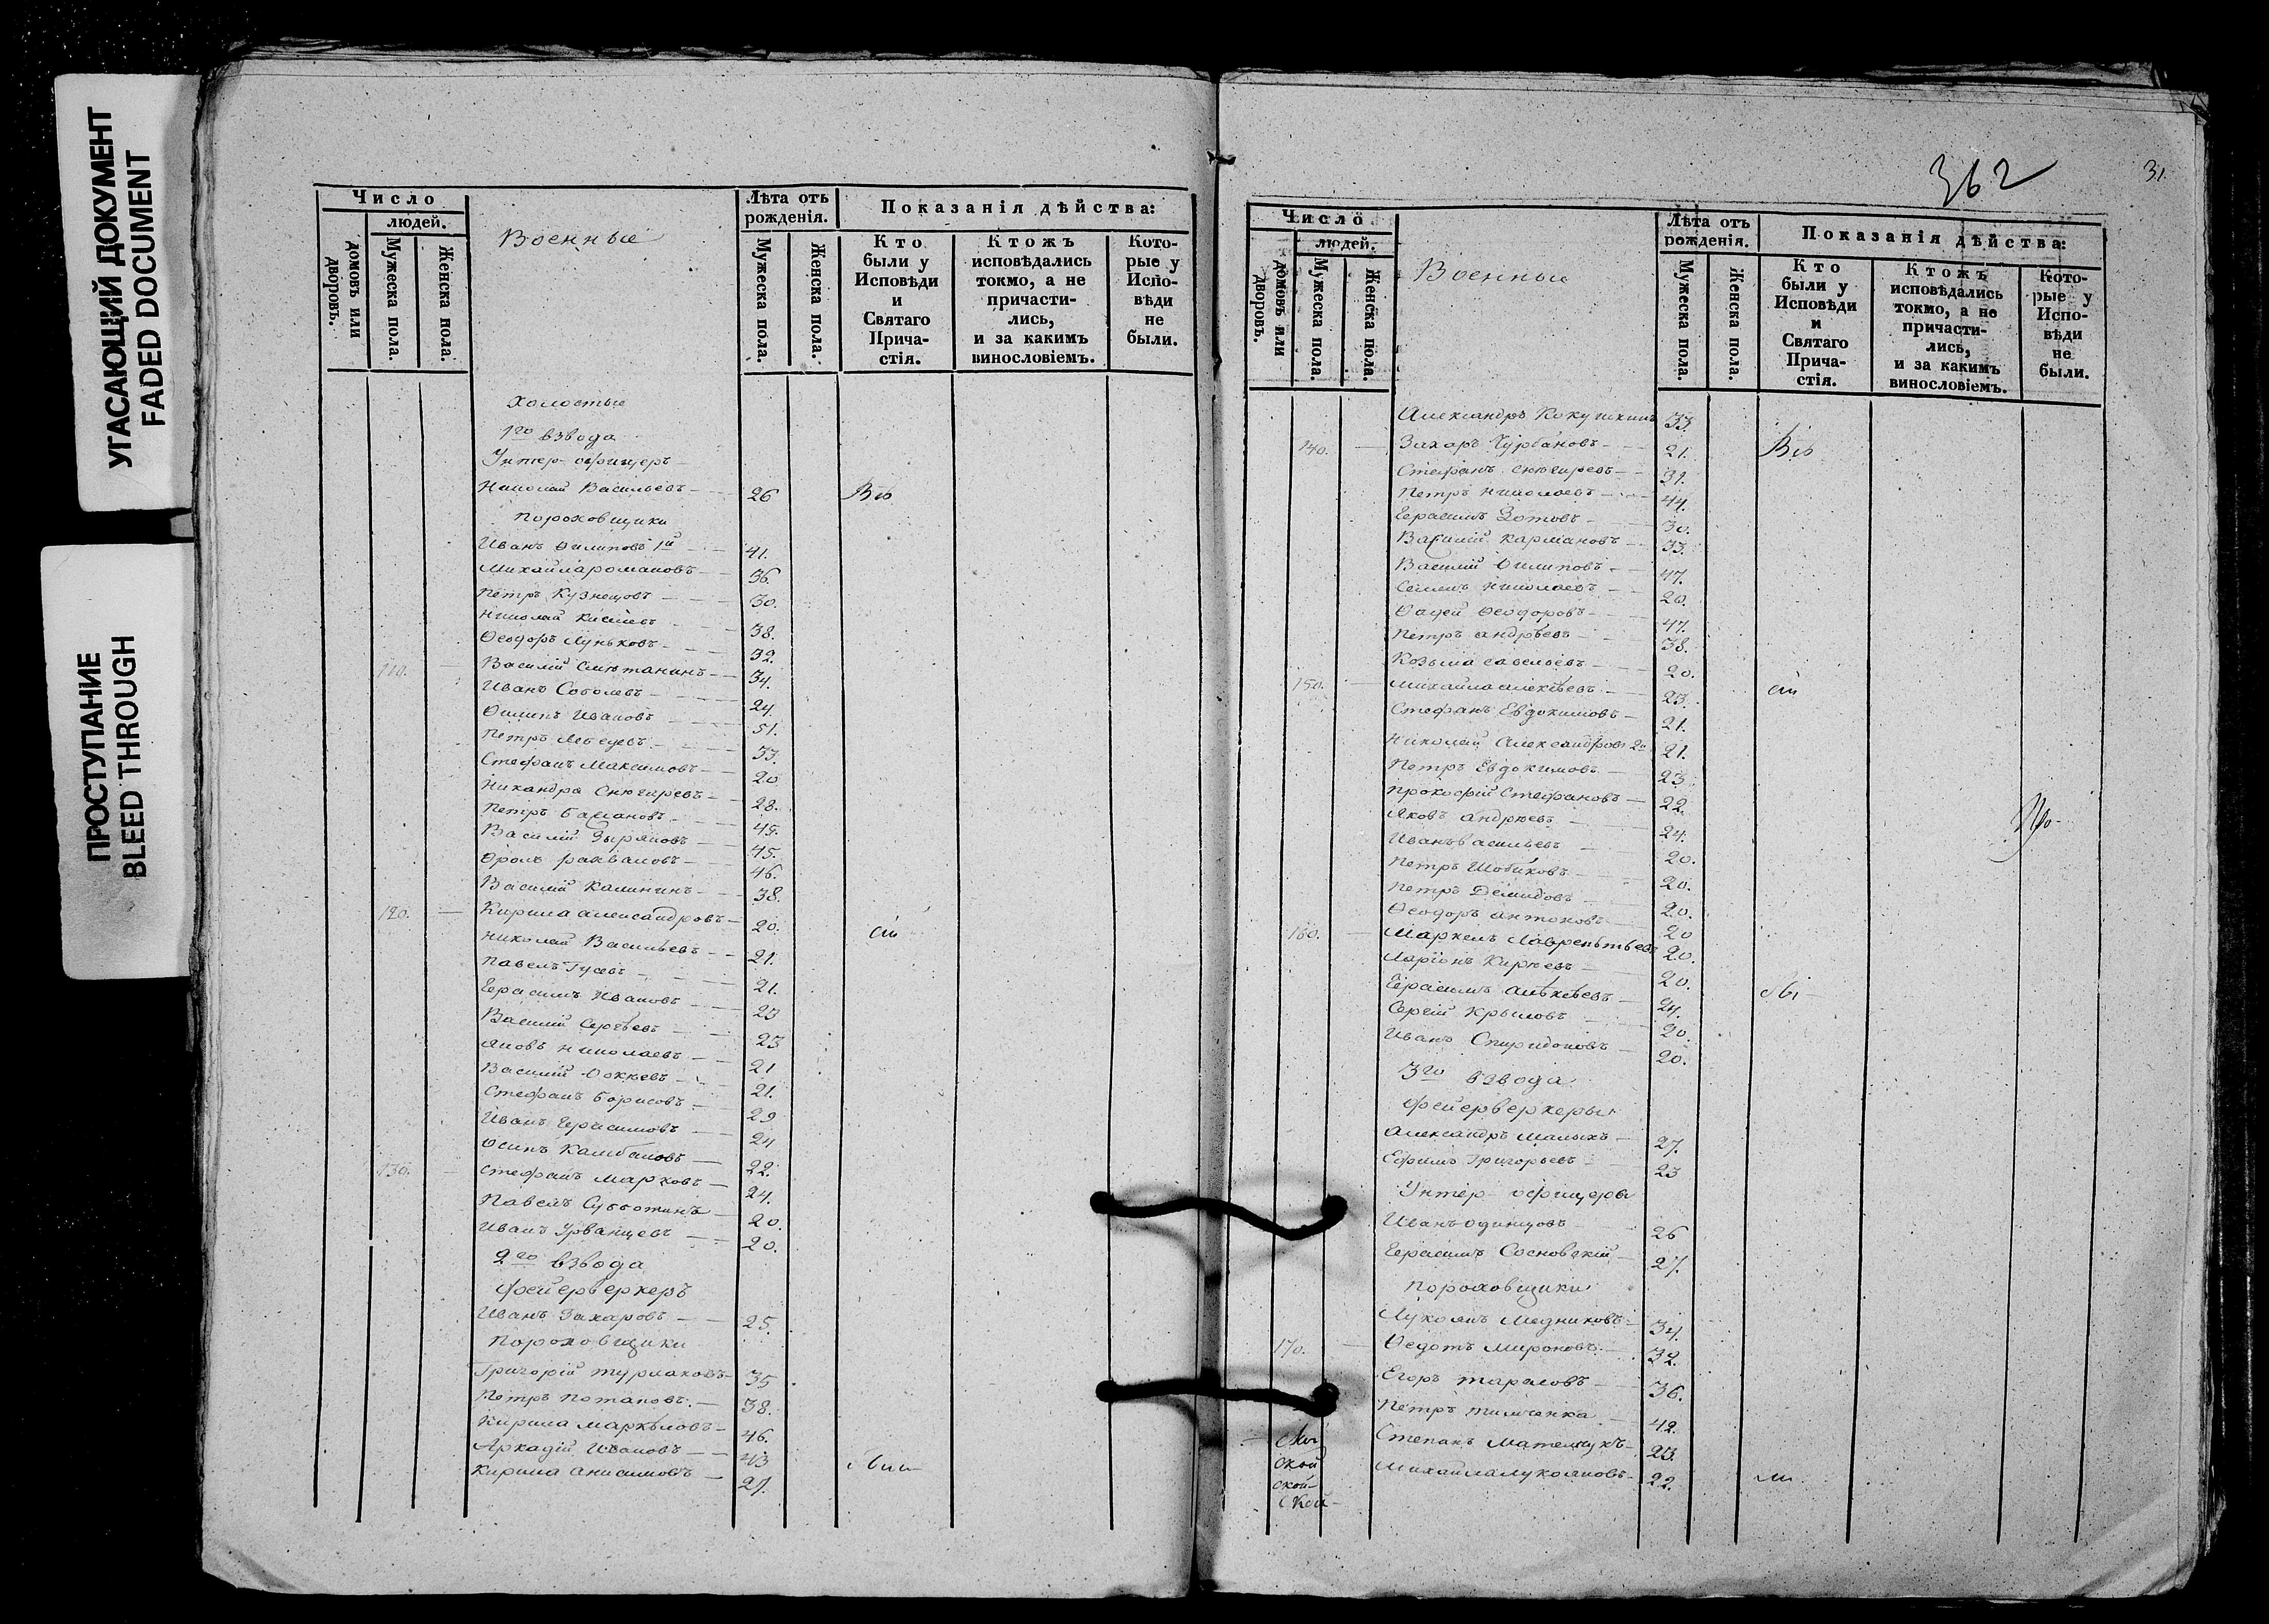 УГАСАЮЩИЙ ДОКУМЕНТ
FADED DOCUMENT
ПРОСТУПАНИЕ
BLEED THROUGH
Число
людей.
домовъ или дворовъ.
Мужеска пола.
Женска пола.
Военные
Лѣта отъ рожденія.
Мужеска пола.
Женска пола.
Показанія дѣйства:
Кто были у Исповѣди и Святаго Прича- стія.
Ктожъ исповѣдались токмо, а не причасти- лись, и за какимъ винословіемъ.
Кото- рые у Испо- вѣди не были.
Холостые
1го взвода
Унтер-офицеръ
Николай Васильевъ 26
Пороховщики
Иванъ Филиповъ 1й 41.
Михайла Романовъ 36.
Петръ Кузнецовъ 30.
Николай Киселевъ 38.
Ѳеодоръ Луньковъ 32.
110. Василій Сметанинъ 34.
Иванъ Соболевъ 24.
Филипъ Ивановъ 51.
Петръ 33.
Стефанъ Максимовъ 20
Никандра Снегиревъ 28.
Петръ 45.
Василій Зыряновъ 45.
Фролъ 46.
Василій Калининъ 38.
120. Кирила Александровъ 20.
Николай Васильевъ 21.
Павелъ Гусевъ 21.
Герасимъ Ивановъ 23
Василій Сергѣевъ 23
Яковъ Николаевъ 21
Василій 21.
Стефанъ Борисовъ 29
Иванъ Герасимовъ 24
Осипъ 22.
130. Стефанъ Марковъ 24.
Павелъ Субботинъ 20.
Иванъ Урванцевъ 20.
2го взвода
Фейерверкеръ
Иванъ Захаровъ 25.
Пороховщики
Григорій 35
Петръ Потаповъ 38.
Кирила Маркѣловъ 46.
Аркадій Ивановъ 43
Кирила Анисимовъ 27.
362
31.
Число
людей.
домовъ или дворовъ.
Мужеска пола.
Женска пола.
Военные
Лѣта отъ рожденія.
Мужеска пола.
Женска пола.
Показанія дѣйства:
Кто были у Исповѣди и Святаго Прича- стія.
Ктожъ исповѣдались токмо, а не причасти- лись, и за какимъ винословіемъ.
Кото- рые у Испо- вѣди не были.
Александръ Кокушкинъ 33.
140. Захаръ Чурбановъ 21.
Стефанъ Снегиревъ 31.
Петръ Николаевъ 44.
Герасимъ Зотовъ 30.
Василій Кармановъ 33.
Василій Филиповъ 47.
Семенъ Николаевъ 20.
Ѳадей Ѳеодоровъ 47.
Петръ Андрѣевъ 38.
Козьма Савельевъ 20.
150. Михайла Алексѣевъ 23.
Стефанъ Евдокимовъ 21.
Николай Александровъ 21.
Петръ Евдокимовъ 23
Прокофій Стефановъ 22.
Яковъ Андреевъ 24.
Иванъ Васильевъ 20.
Петръ 20.
Петръ Демидовъ 20.
Ѳеодоръ Антоновъ 20
160. Маркелъ Лаврентьевъ 20.
Ларіонъ Киреевъ 20.
Герасимъ Алексѣевъ 24.
Сергій Крыловъ 20.
Иванъ Спиридоновъ 20.
3го взвода
Фейерверкеры
Александръ Малыхъ 27.
Ефимъ Григорьевъ 23
Унтер-офицеры
Иванъ Одинцовъ 26
Герасимъ Сосновскій 27.
Пороховщики
Лукоянъ Медниковъ 34.
170. Ѳедотъ Мироновъ 32.
Егоръ Тарасовъ 36.
Петръ Тимченка 42.
Степанъ 23.
Михайла Лукояновъ 22.
ской
ской